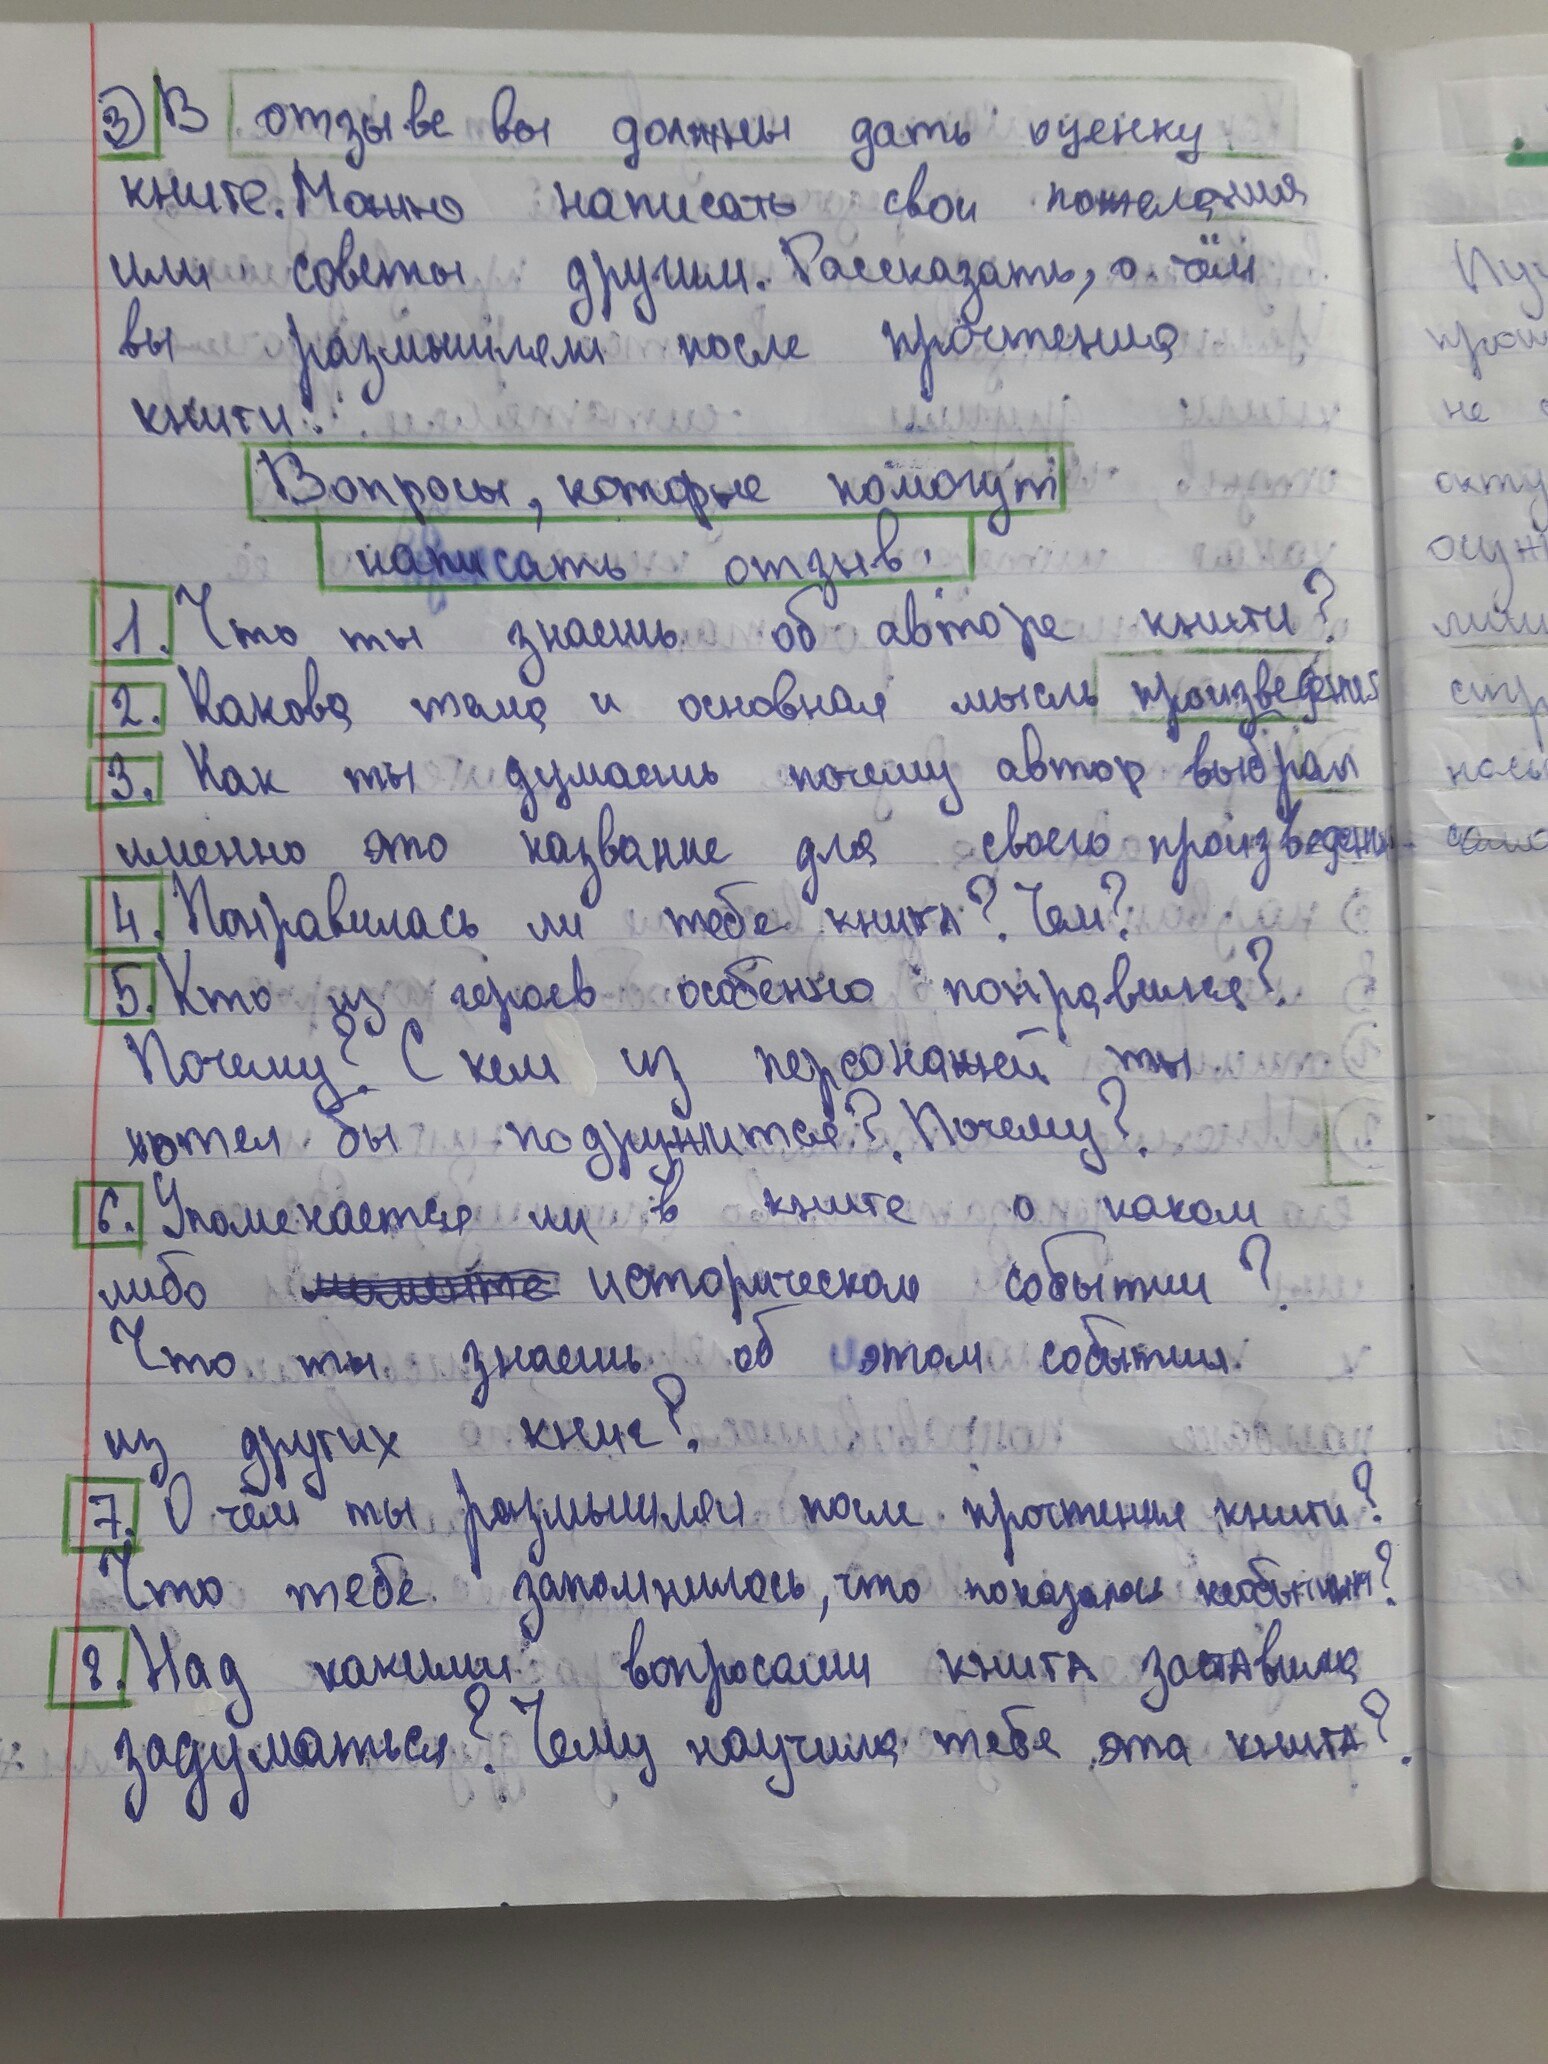 3) В отзыве вы должны дать оценку
книге. Можно написать свои пожелания
или советы другим. Рассказать, о чём
вы размышляли после прочтения
книги.
Вопросы, которые помогут
написать отзыв.
1. Что ты знаешь об авторе книги?
2. Какова тема и основная мысль произведения
3. Как ты думаешь почему автор выбрал
именно это название для своего произведения
4. Понравилась ли тебе книга? Чем?
5. Кто из героев особенно понравился?
Почему? С кем из персонажей ты
хотел бы подружится? Почему?
6. Упоменается ли в книге о каком
либо историческом событии?
Что ты знаешь об этом событии
из других книг?
7. О чём ты размышлял после прочтения книги?
Что тебе запомнилось, что показалось необычным?
8. Над какими вопросами книга заставила
задуматься? Чему научила тебе эта книга?